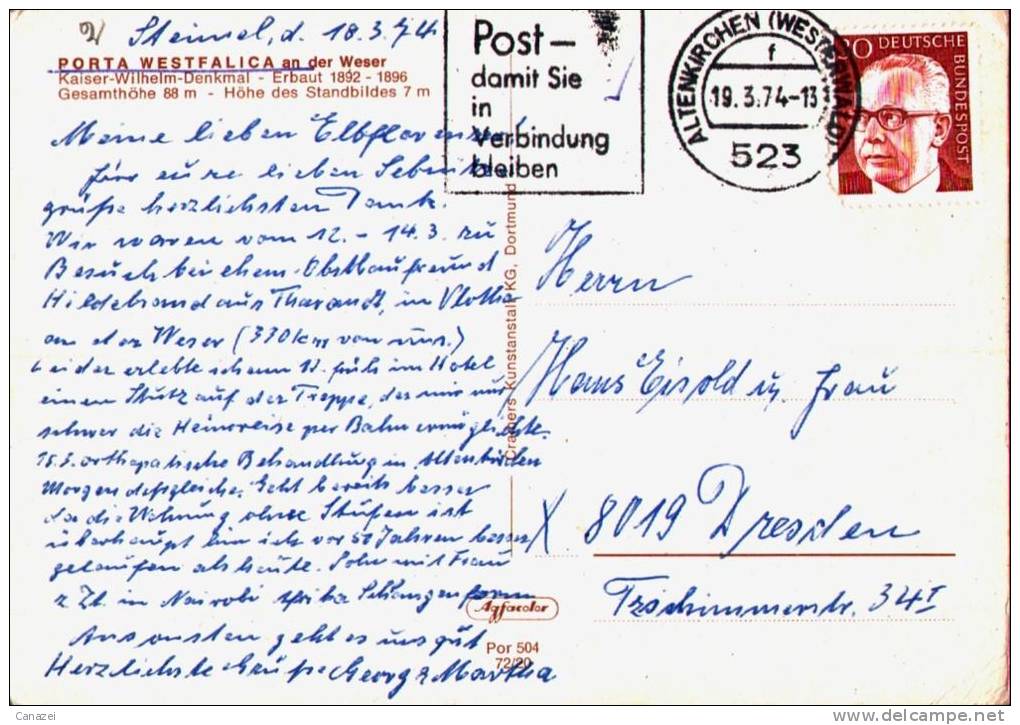 Steimel, d. 18.3.74
PORTA WESTFALICA an der Weser
Kaiser-Wilhelm-Denkmal - Erbaut 1892 - 1896
Gesamthöhe 88 m - Höhe des Standbildes 7 m
Meine lieben Elbflorenzer!
für eure lieben
grüße herzlichsten Dank.
Wir waren vom 12. - 14.3. zu
Besuch bei ehem. Obstbaufreund
Hildebrand aus Tharandt, in Vlotho
an der Weser (330 km von uns.)
Leider erlebte ich am im Hotel
einen Sturz auf der Treppe, der mir nur
schwer die Heimreise per Bahn ermöglichte.
15.3. orthopätische Behandlung in Altenkirchen
Morgen desgleichen. Geht bereits besser
da die Wohnung ohne Stufen ist
überhaupt bin ich vor 50 Jahren besser
gelaufen als heute. Sohn mit Frau
z. Zt. in Nairobi Afrika Schlangenfarm
Ansonsten geht es uns gut
Herzlichste Grüße Georg & Martha
Post-
damit Sie
in
Verbindung
bleiben
ALTENKIRCHEN (WESTERWALD)
f
19.3.74-13
523
30 DEUTSCHE
BUNDESPOST
Cramers Kunstanstalt KG, Dortmund
Herrn
Hans Eisold u. Frau
X 8019 Dresden
Tzschimmerstr. 34 I
Agfacolor
Por 504
72/20
Canazei
http://www.delcampe.net